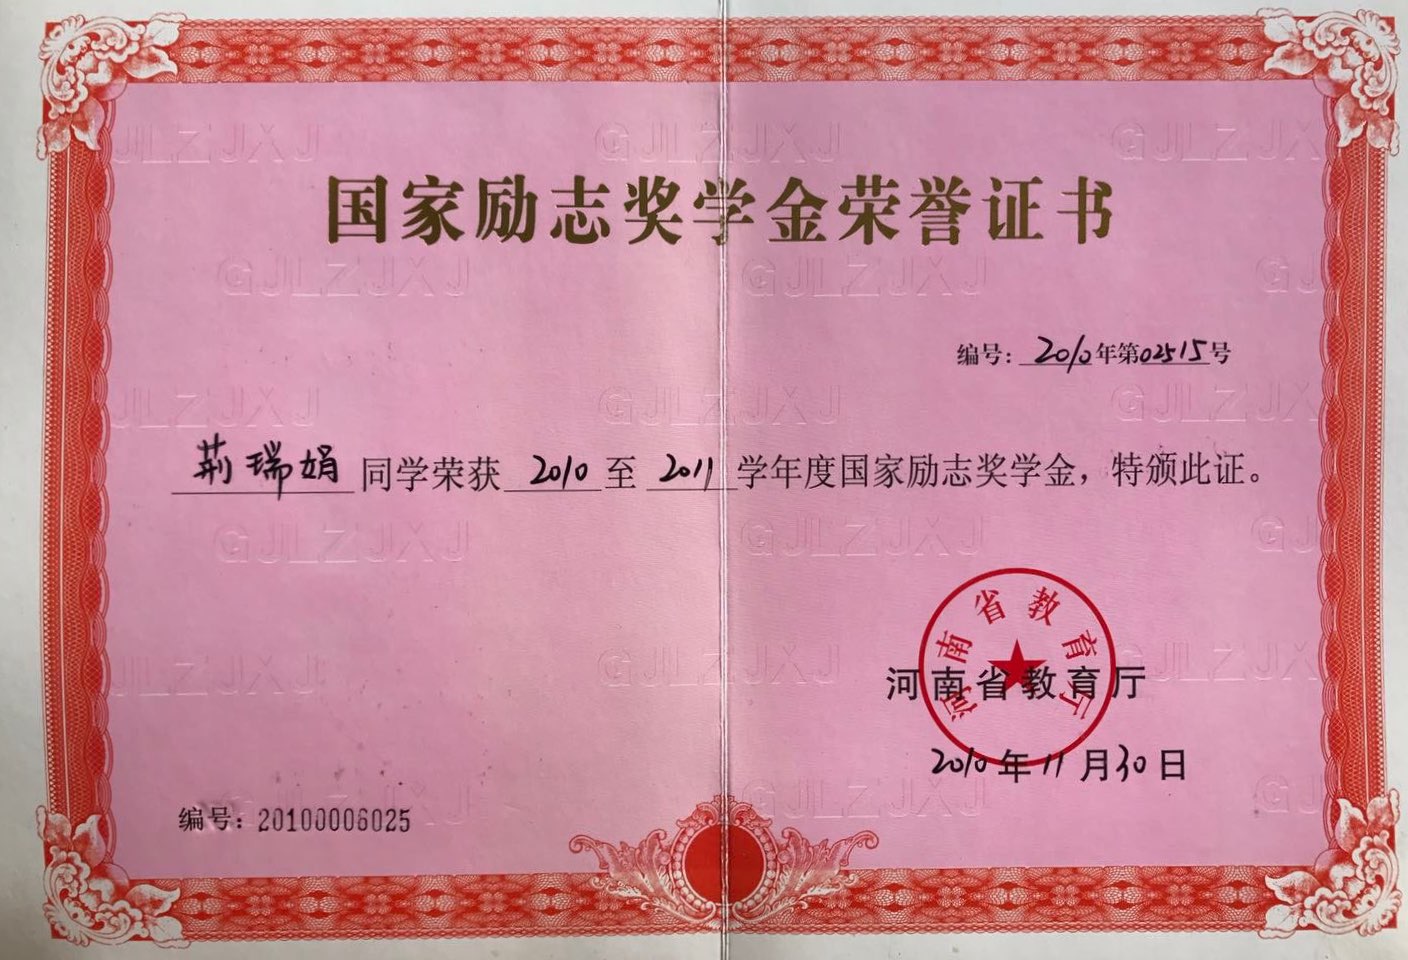 国家励志奖学金荣誉证书
编号：2010年第02515号
荆瑞娟同学荣获2010至2011学年度国家励志奖学金，特颁此证。
河南省教育厅
河南省教育厅
2010年11月30日
编号：20100006025
GJLZJXJ